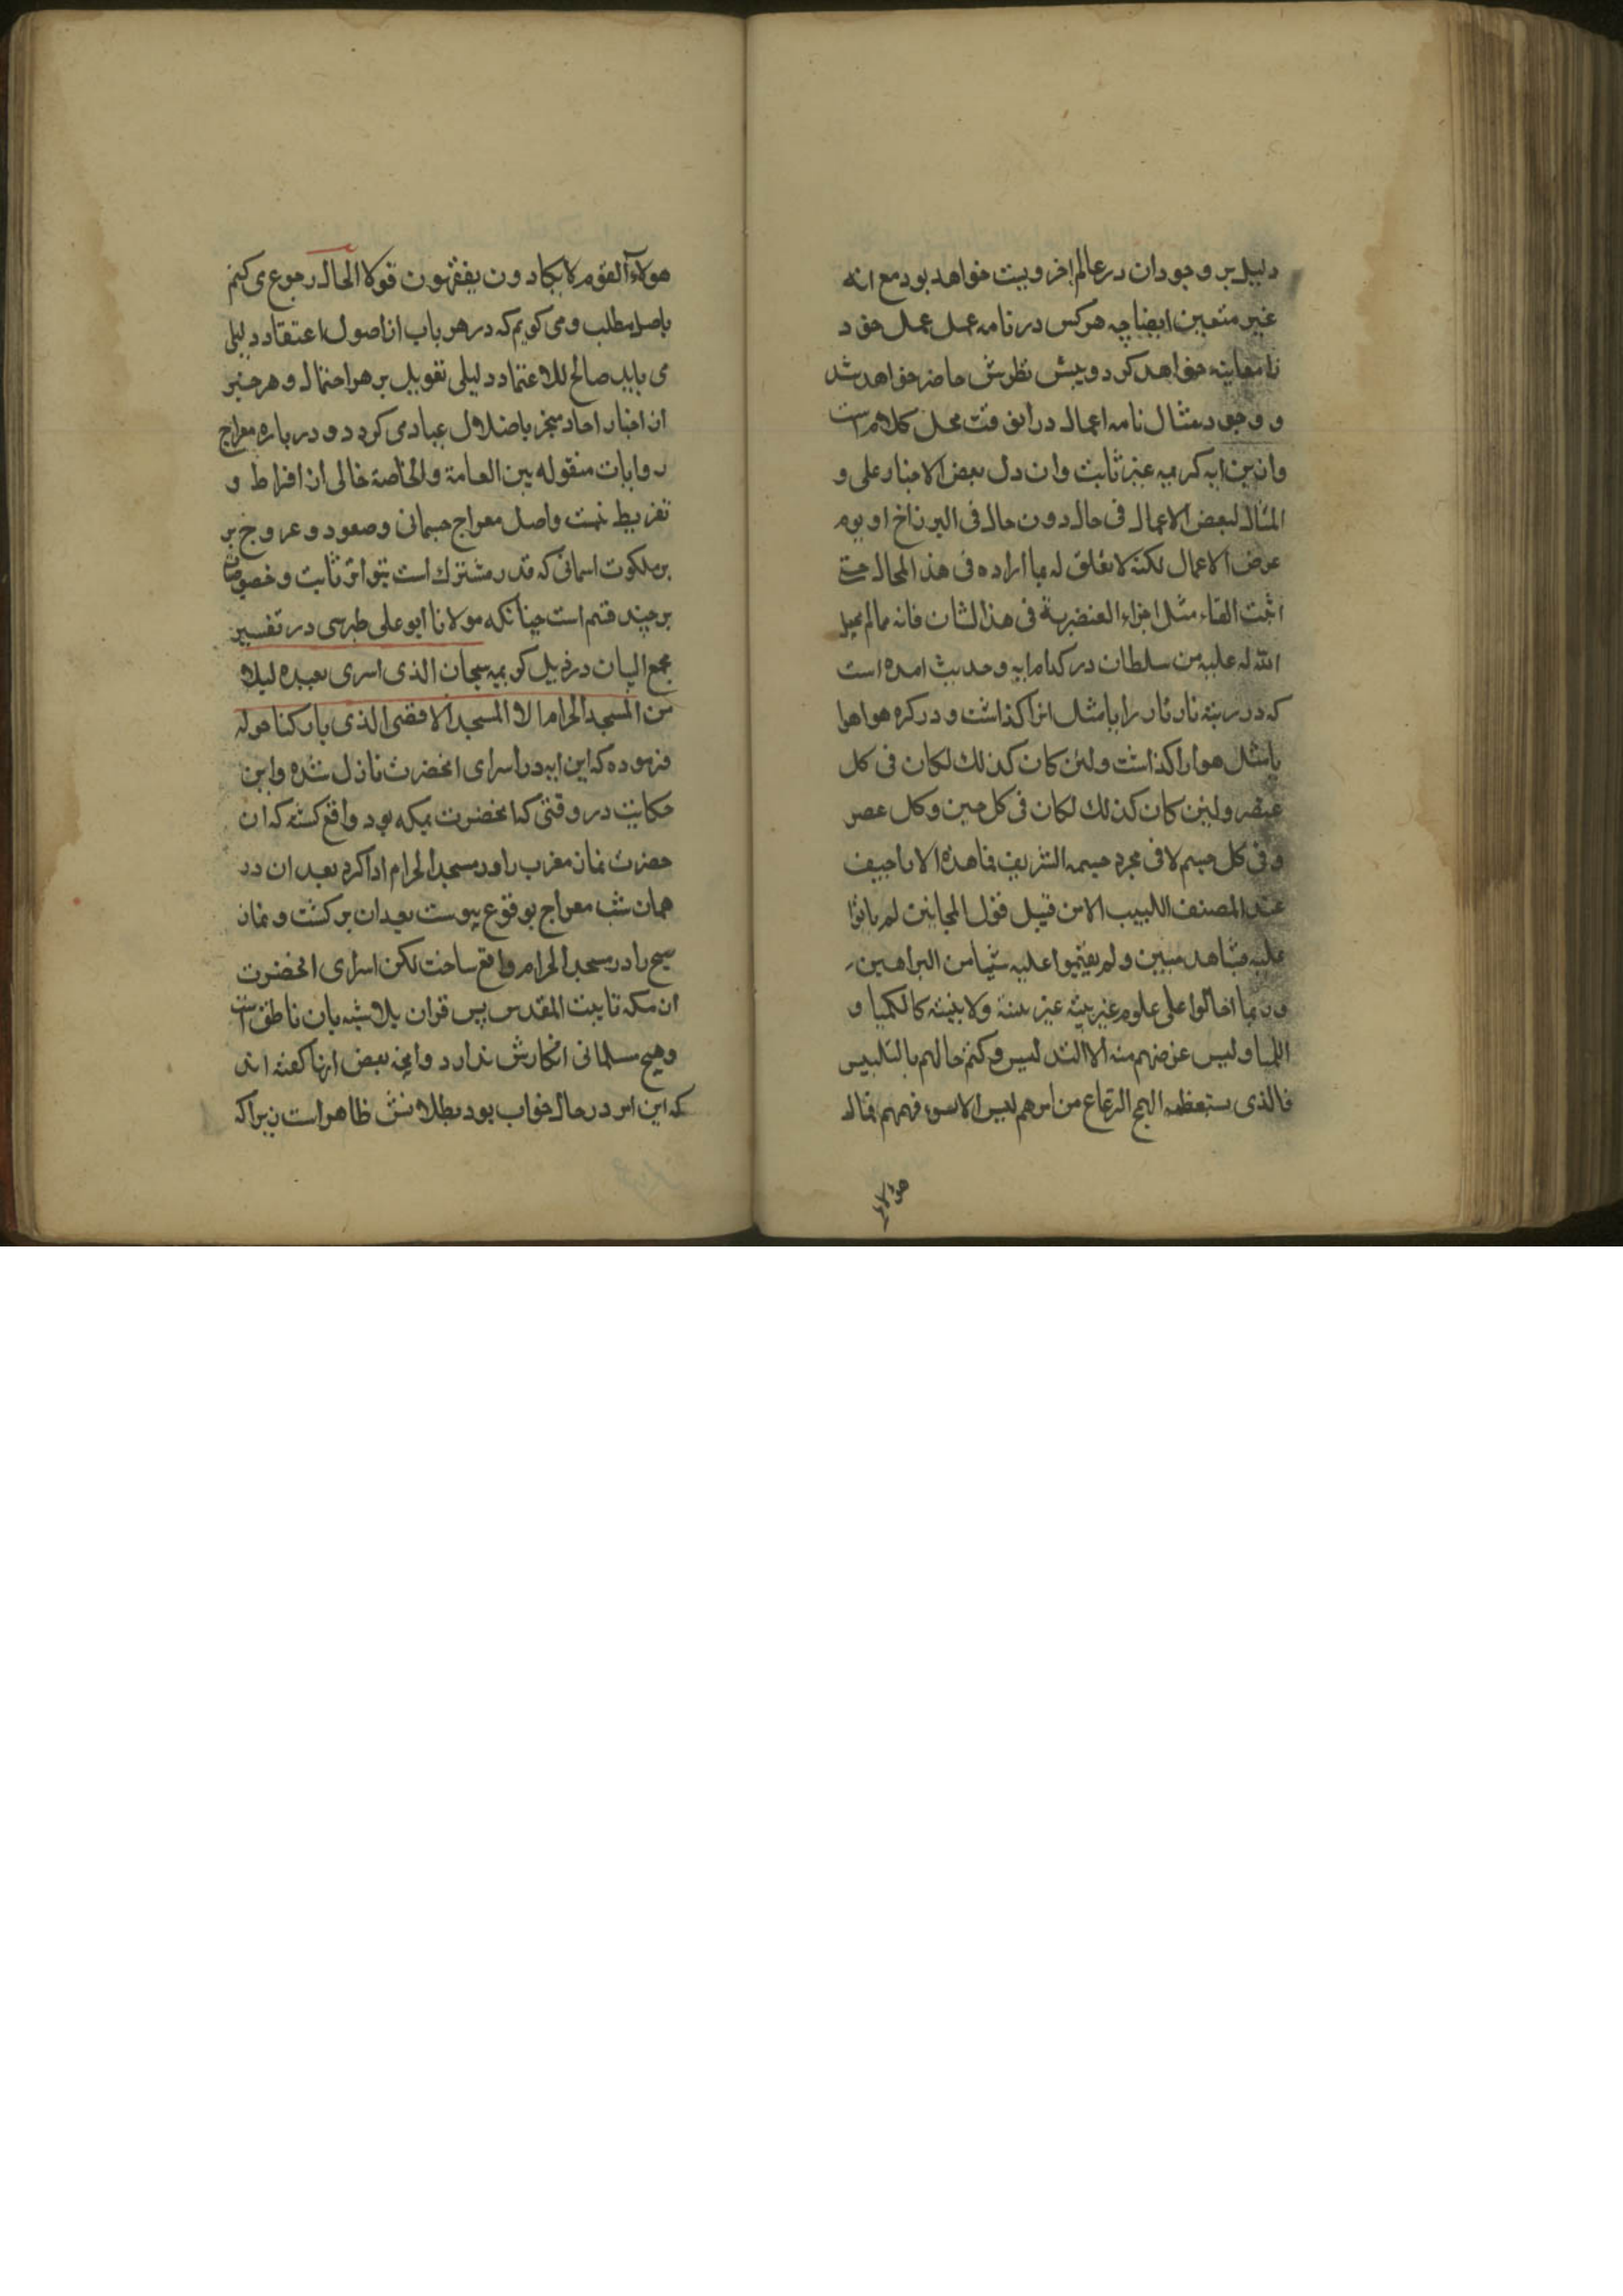 دلیل بر وجودان در عالم اخرویت خواهد بود مع انه
غیر متعین ایضا چه هرکس در نامه عمل عمل خود
نا معاینه خواهد کرد و پیش نظرش حاضر خواهد شد
و وجود مثال نامه اعمال در انوقت محل کلام است
وان من ایه کریمه غیر ثابت وان دل بعض الاخبار علی و
المثال لبعض الاعمال فی حال دون حال فی البرزاخ او یوم
عرض الاعمال لکنه لا تعلق له بما اراده فی هذ المحال حتی
اثبت القاء مثل اجزاء العنصریة فی هذا الشان فانه مما لم یجعل
الله له علیه من سلطان در کدام ایه و حدیث امده است
که در رتبه نار نار را یا مثل انرا کذاشت و در کره هوا هوا
یا مثل هوا را کذاشت ولئن کان کذلك لکان فی کل
عنصر ولئن کان کذلك لکان فی کل حین و کل عصر
و فی کل جسم لا فی مجرد جسمه الشریف فما هذه الا اراجیف
عند المصنف اللبیب الا من قبیل قول المجانین لم یاتوا
علیه بشاهد مبین ولم یقیموا علیه شیا من البراهین
وربما احالوا علی علوم غریبة غیر بینة ولا مبینة کالکمیا و
اللمیا ولیس غرضهم منه الا التدلیس و کتم حالهم بالتلبیس
فالذی یستعظمه الهمج الرعاع من امرهم لیس الا لسوء فهمهم فمال
هؤلاء
هولاء القوم لا یکادون یفقهون قولا الحال رجوع می کنم
باصل مطلب و می کویم که در هر باب از اصول اعتقاد دلیلی
می باید صالح للاعتماد دلیلی تعویل بر هر احتمال و هر خبر
از اخبار احاد منجر باضلال عباد می کردد و در باره معراج
روایات منقوله بین العامة والخاصة خالی از افراط و
تفریط نیست واصل معراج جسمانی وصعود و عروج بر
بر ملکوت اسمانی که قدر مشترك است بتواتر ثابت و خصوصیات
بر چند قسم است چنانکه مولانا ابو علی طبرسی در تفسیر
مجمع البیان در ذیل کریمه سبحان الذی اسری بعبده لیلا
من المسجد الحرام الا المسجد الاقصی الذی بارکنا حوله
فرموده که این ایه در اسرای انحضرت نازل شده واین
حکایت در وقتی که انحضرت بمکه بود واقع کشته که ان
حضرت نماز مغرب را در مسجد الحرام ادا کرد بعد ازان در
همان شب معراج بوقوع پیوست بعد ازان بر کشت و نماز
صبح را در مسجد الحرام واقع ساخت لکن اسرای انحضرت
از مکه تا بیت المقدس پس قران بلا شبه بان ناطق است
وهیچ مسلمانی انکارش ندارد وانچه بعض انها کفته اند
که این امر در حال خواب بود بطلانش ظاهر است زیرا که